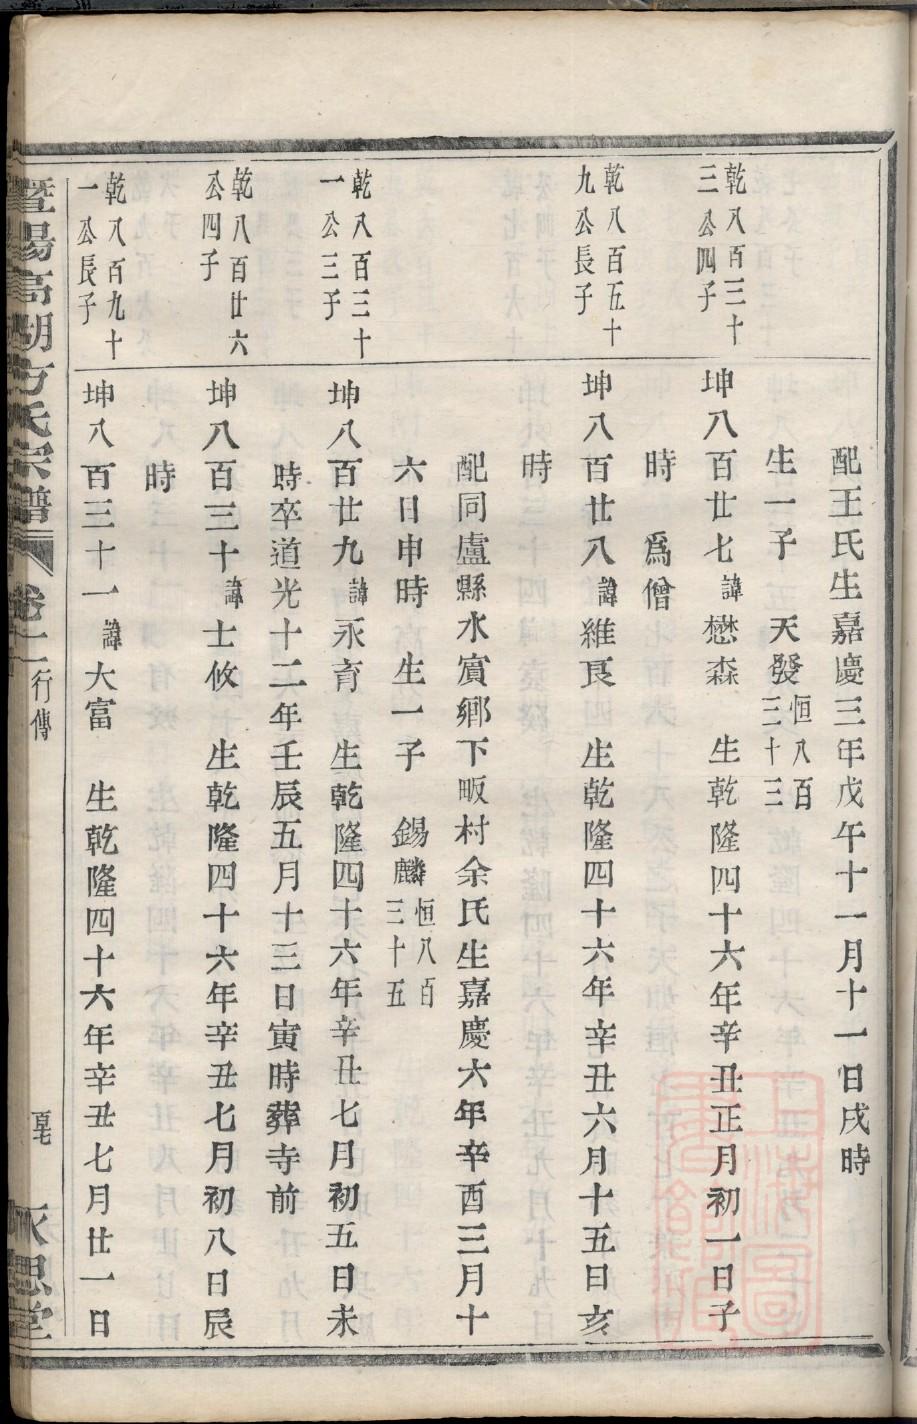 配王氏生嘉慶三年戊午十一月十一日戌時
生一子　天發恒八百三十三
乾八百三十三公四子
坤八百廿七諱懋森　生乾隆四十六年辛丑正月初一日子
時　爲僧
乾八百五十九公長子
坤八百廿八諱維艮　生乾隆四十六年辛丑六月十五日亥
時
配同盧縣水賓鄉下畈村余氏生嘉慶六年辛酉三月十
六日申時　生一子　錫麟恒八百三十五
乾八百三十一公三子
坤八百廿九諱永育　生乾隆四十六年辛丑七月初五日未
時卒道光十二年壬辰五月十三日寅時葬寺前
乾八百廿六公四子
坤八百三十諱士攸　生乾隆四十六年辛丑七月初八日辰
時
乾八百九十一公長子
坤八百三十一諱大富　生乾隆四十六年辛丑七月廿一日
暨陽高湖方氏宗譜　卷十二　行傳　永思堂